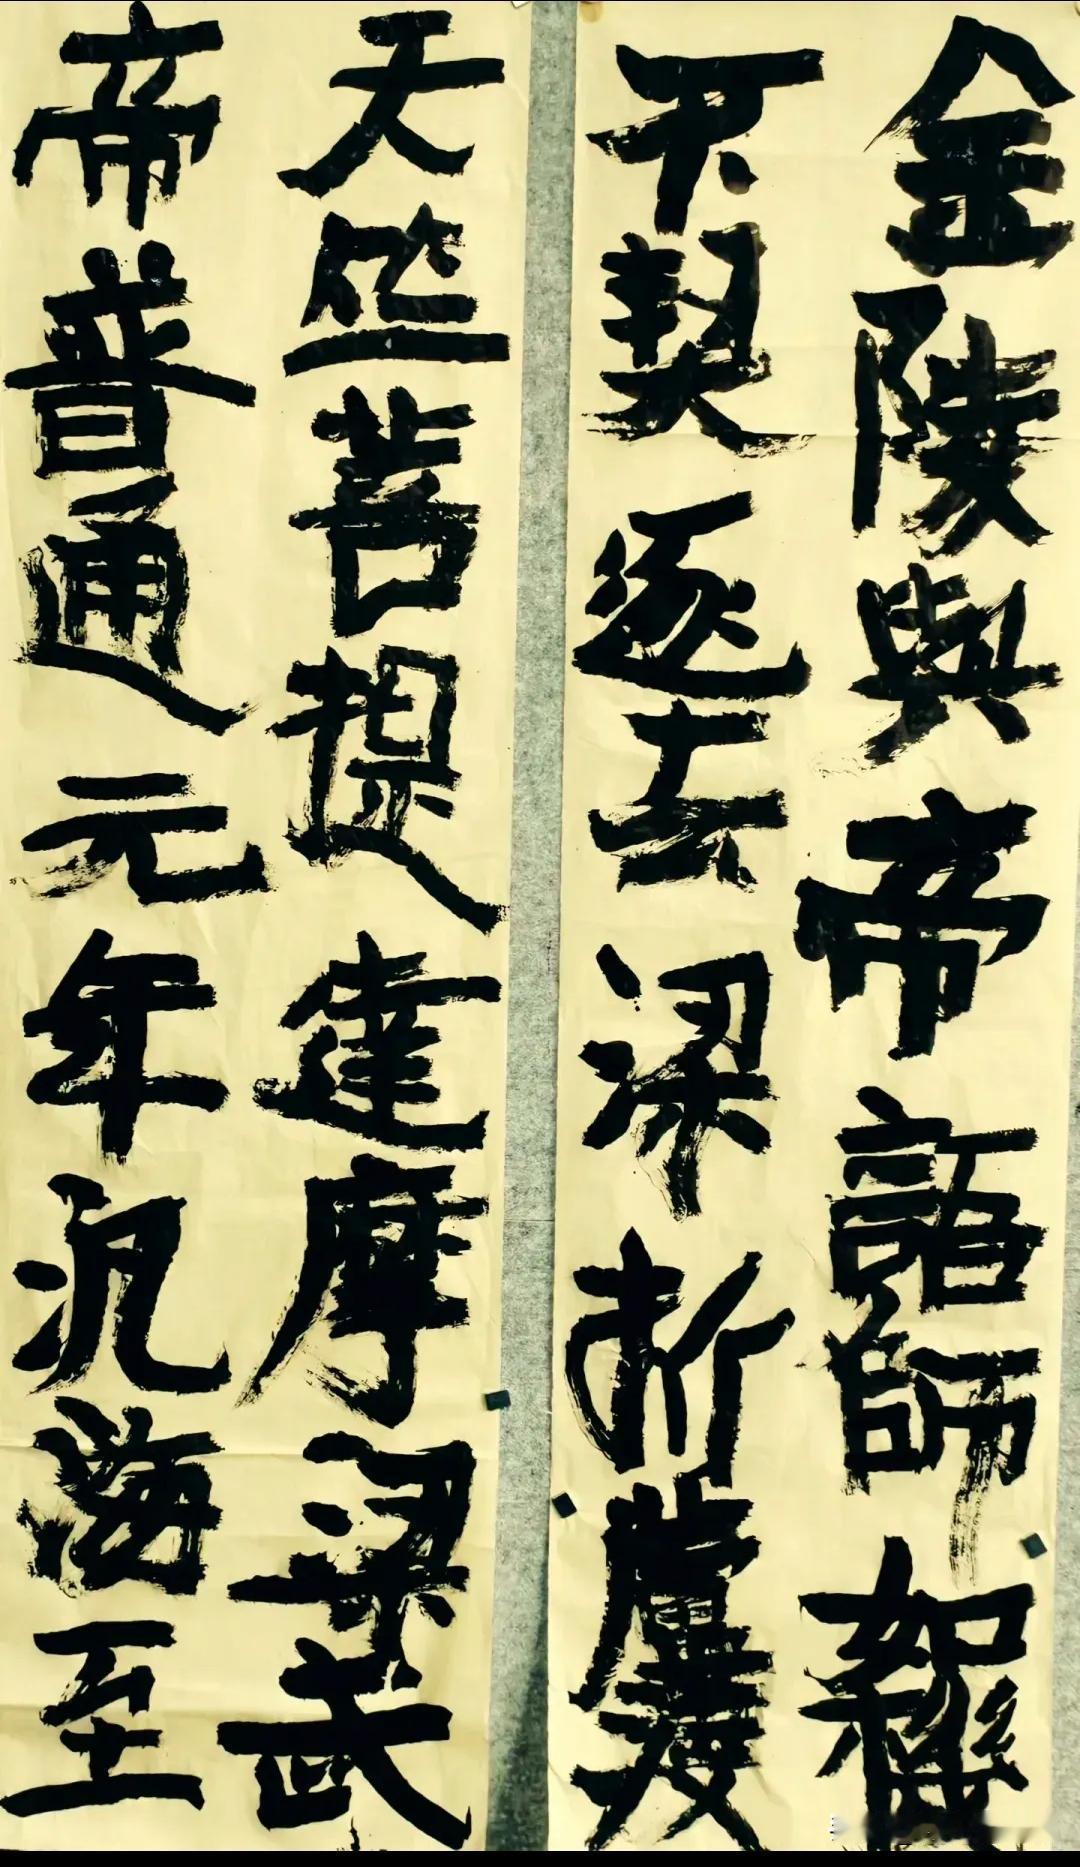 金陵與帝語師知機
不契遂去梁折蘆渡
天竺菩提達摩梁武
帝普通元年汎海至